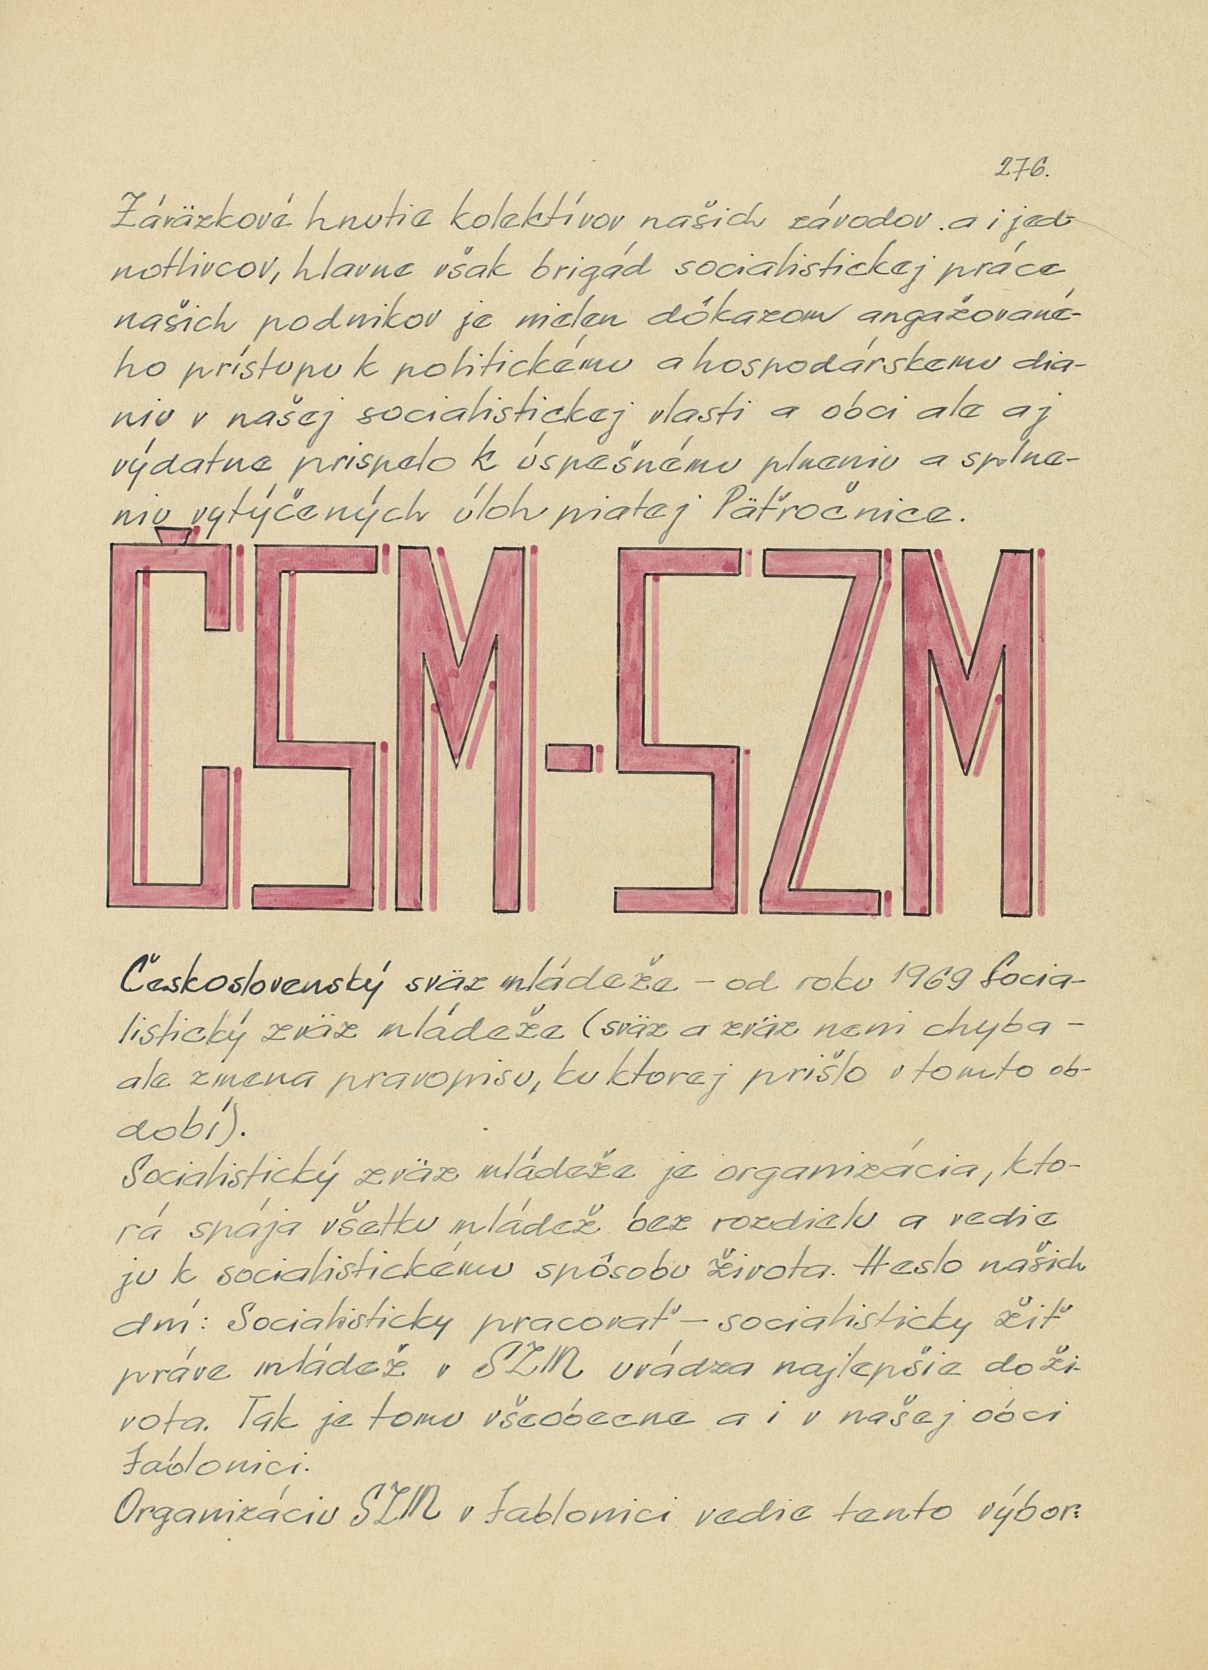 276.
Záväzkové hnutie kolektívov našich závodov a i jed-
notlivcov, hlavne však brigád socialistickej práce
našich podnikov je nielen dôkazom angažované-
ho prístupu k politickému a hospodárskemu dia-
niu v našej socialistickej vlasti a obci ale aj
výdatne prispelo k úspešnému plneniu a splne-
niu vytýčených úloh piatej Päťročnice.
ČSM-SZM
Československý sväz mládeže - od roku 1969 Socia-
listický zväz mládeže (sväz a zväz neni chyba -
ale zmena pravopisu, ku ktorej prišlo v tomto ob-
dobí).
Socialistický zväz mládeže je organizácia, kto-
rá spája všetku mládež bez rozdielu a vedie
ju k socialistickému spôsobu života. Heslo našich
dní: Socialisticky pracovať - socialisticky žiť
práve mládež v SZM uvádza najlepšie do ži-
vota. Tak je tomu všeobecne a i v našej obci
Jablonici.
Organizáciu SZM v Jablonici vedie tento výbor: